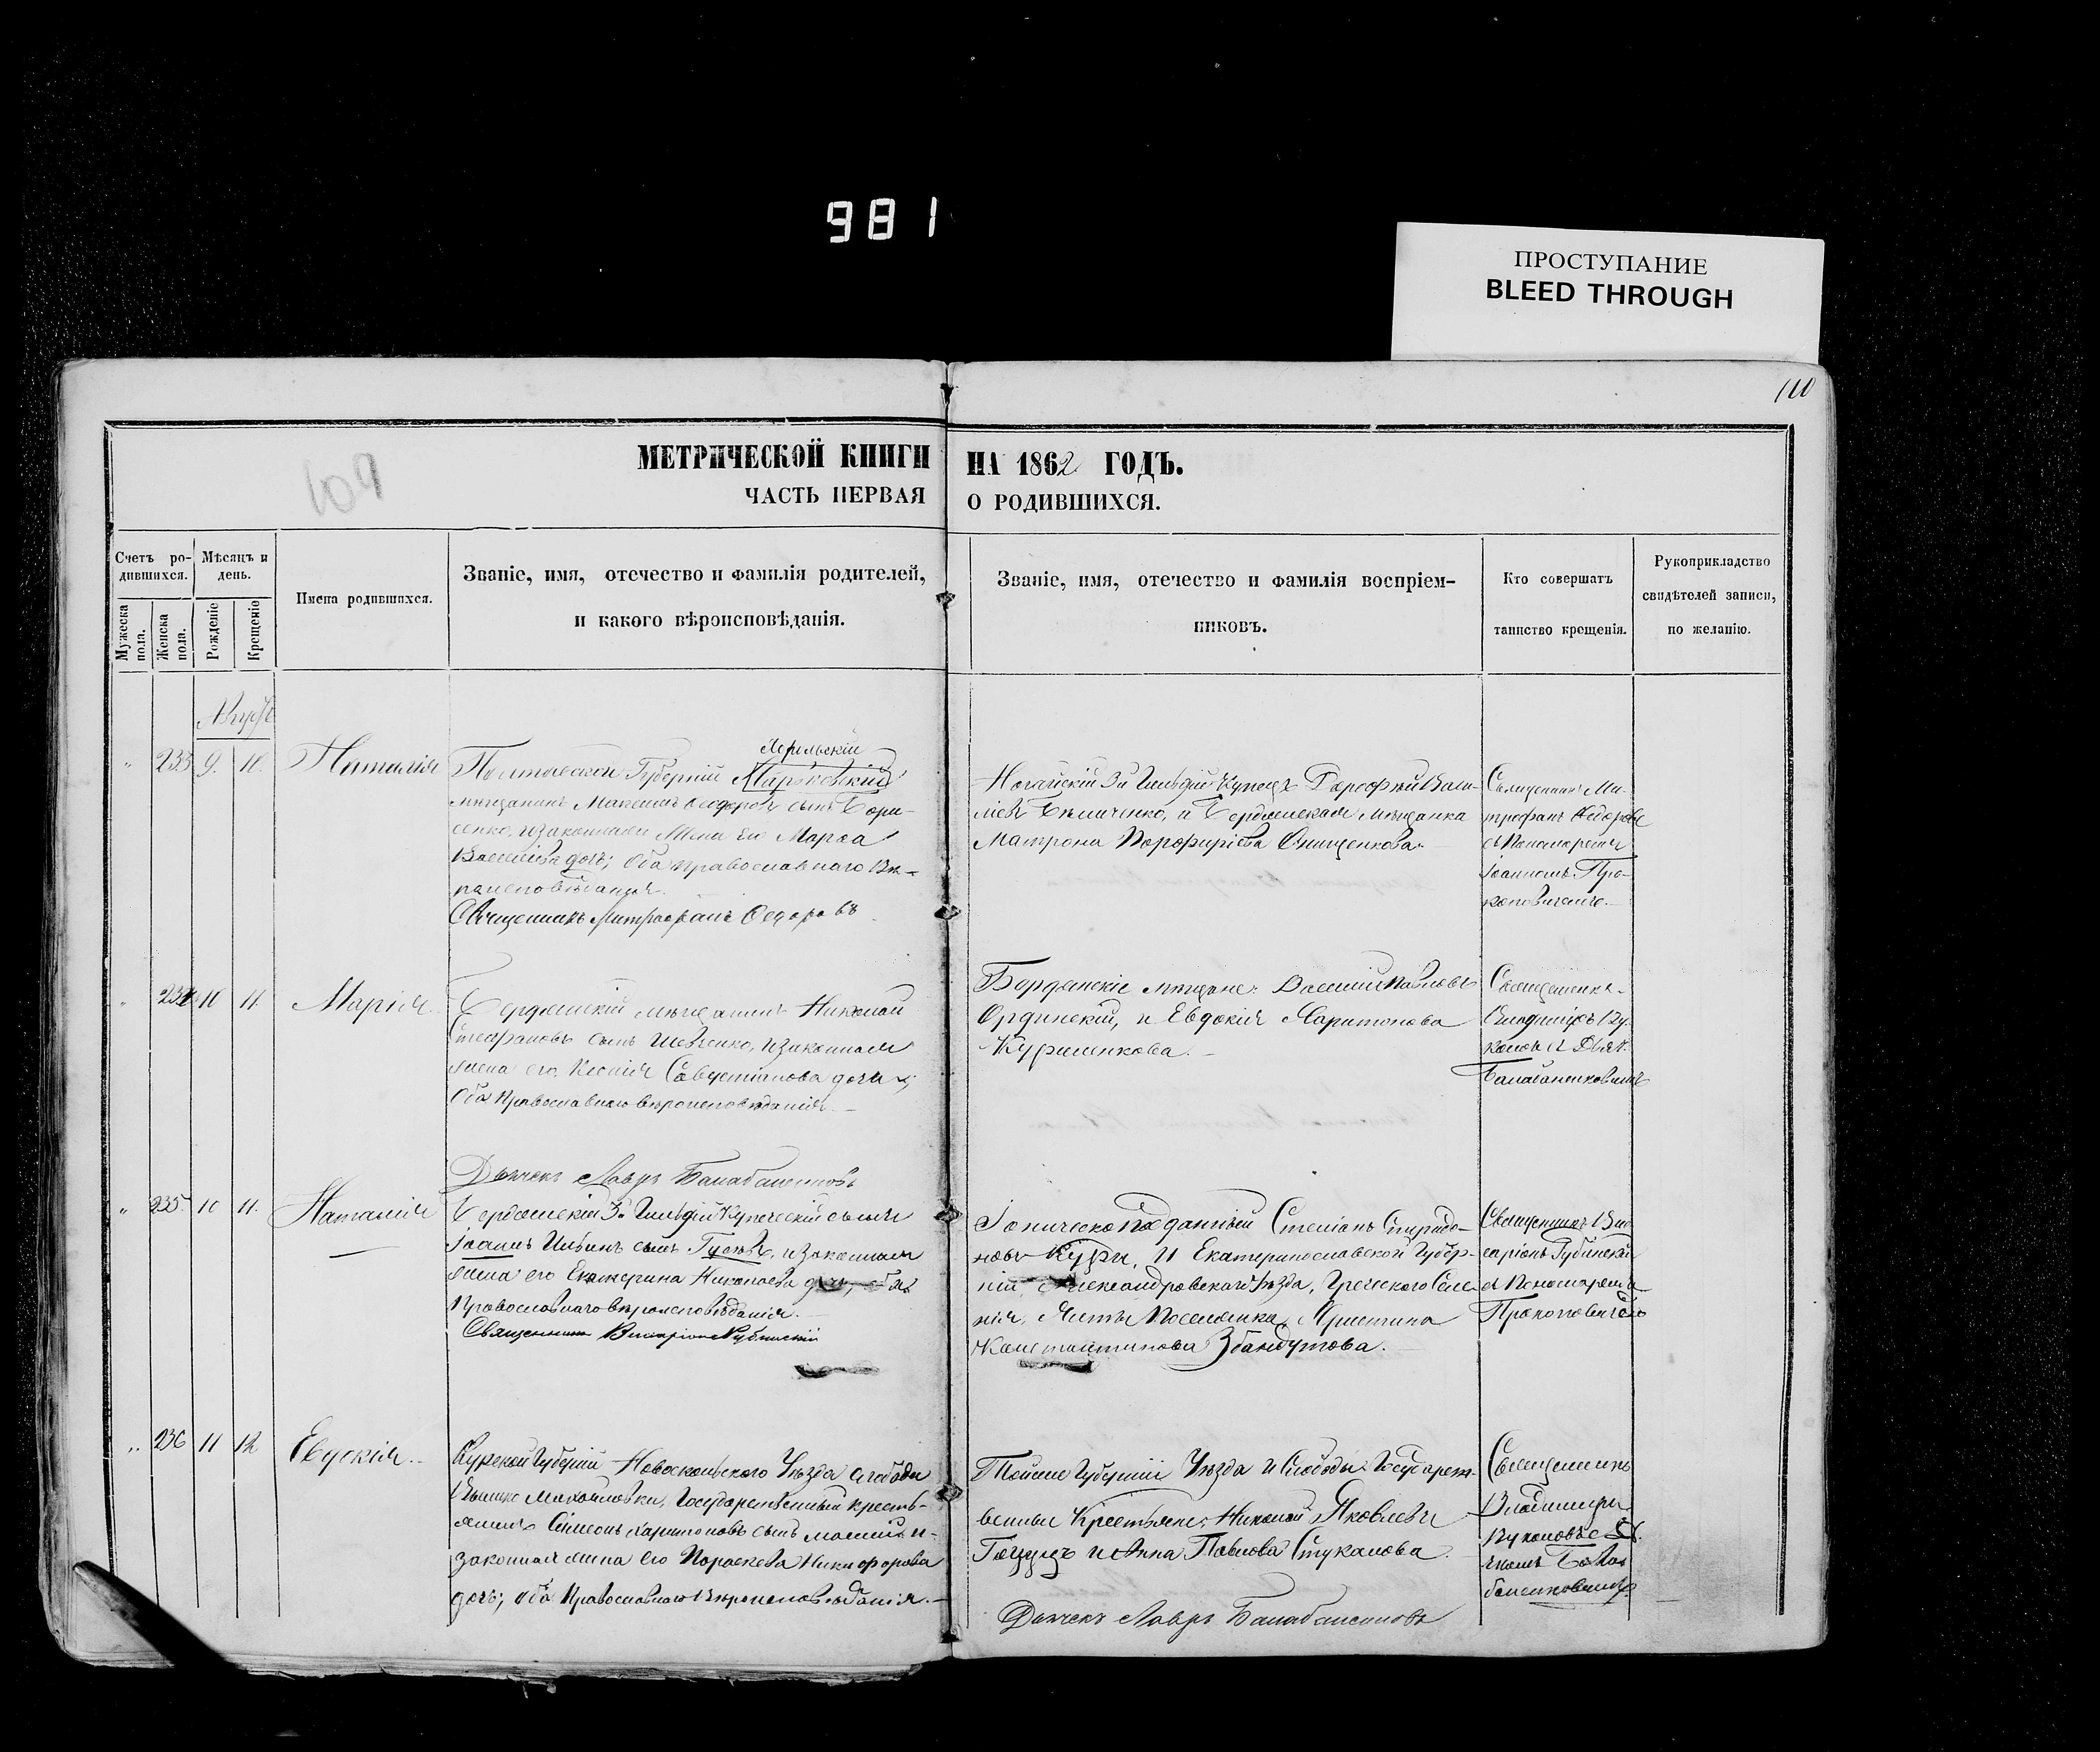 981
ПРОСТУПАНИЕ
BLEED THROUGH
110
109
МЕТРИЧЕСКОЙ КНИГИ НА 1862 ГОДЪ.
ЧАСТЬ ПЕРВАЯ О РОДИВШИХСЯ.
Счетъ ро-
дившихся.
Мужеска пола.
Женска пола.
Мѣсяцъ и
день.
Рожденіе
Крещеніе
Имена родившихся.
Званіе, имя, отечество и фамилія родителей,
и какого вѣроисповѣданія.
Званіе, имя, отечество и фамилія воспріем-
никовъ.
Кто совершатъ
таинство крещенія.
Рукоприкладство
свидѣтелей записи,
по желанію.
Августъ
" 233 9. 10. Наталія
Полтавской Губерніи
мѣщанинъ Максимъ Ѳеодоровъ сынъ Бори-
сенко, и законная жена его Марѳа
Васильева дочь; оба православнаго Вѣ-
роисповѣданія.
Священникъ Митрофанъ Ѳедоровъ
Ногайскій 3й Гильдіи Купецъ Василь-
евъ и Бердянская мѣщанка
Матрона Порфиріева Онищенкова.
Священникъ Ми-
трофанъ Ѳедоровъ
съ Пономаремъ
Іоанномъ Про-
коповичемъ.
" 234 10 11 Марія
Бердянскій мѣщанинъ Николай
Стефановъ сынъ Шевченко, и законная
жена его Ксенія дочь;
Оба Православнаго вѣроисповѣданія.
Дьячекъ Лавръ Балабаненковъ
Бердянскіе мѣщане: Василій Павловъ
Ординскій, и Евдокія Харитонова
Куриленкова.
Священникъ
Владиміръ Ву-
коловъ съ Дьяч.
Балабаненковымъ
" 235. 10 11. Наталія
Бердянскій 3й Гильдіи Купеческій сынъ
Іоаннъ Ильинъ сынъ и законная
жена его Екатерина Николаева дочь, оба
Православнаго вѣроисповѣданія.
Священникъ Виссаріонъ Губинскій
Іоническоподданный Стеліанъ Спиридо-
новъ Кури, и Екатеринославской Губер-
ніи Александровскаго Уѣзда, Греческого Селе-
нія, Ялты Поселянка, Христина
Константинова Збандутова.
Священникъ Вис-
саріонъ Губинскій
съ Пономаремъ
Прокоповичемъ
" 236 11 12 Евдокія
Курской Губерніи Новооскольского Уѣзда слободы
Михайловки, Государственный кресть-
янинъ Симеонъ Харитоновъ сынъ и
законная жена его Параскева Никифорова
дочь; оба Православнаго Вѣроисповѣданія.
Тойже Губерніи Уѣзда и Слободы Государст-
венные Крестьяне, Николай Яковлевъ
и Анна Павлова Стукалова.
Дьячекъ Лавръ Балабаненковъ
Священникъ
Владиміръ
Вуколовъ съ Дь-
ячкомъ Бала-
баненковымъ